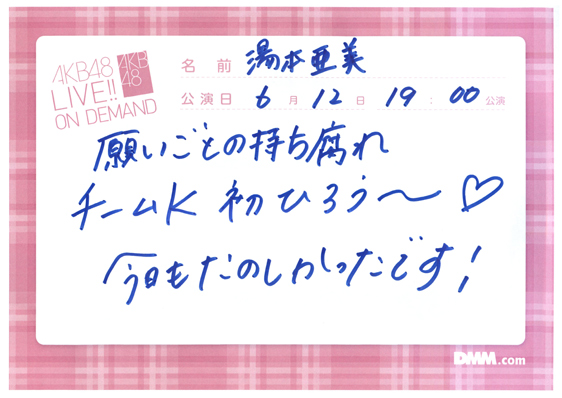 AKB48
LIVE!!
ON DEMAND
AKB
48
名前 湯本亜美
公演日 6月12日 19:00公演
願いごとの持ち腐れ
チームK 初ひろう〜♡
今日もたのしかったです!
DMM.com